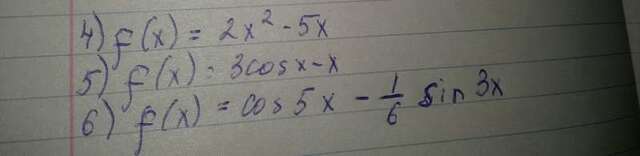 4) f(x) = 2x² - 5x
5) f(x) = 3cosx - x
6) f(x) = cos 5x - 1/6 sin 3x